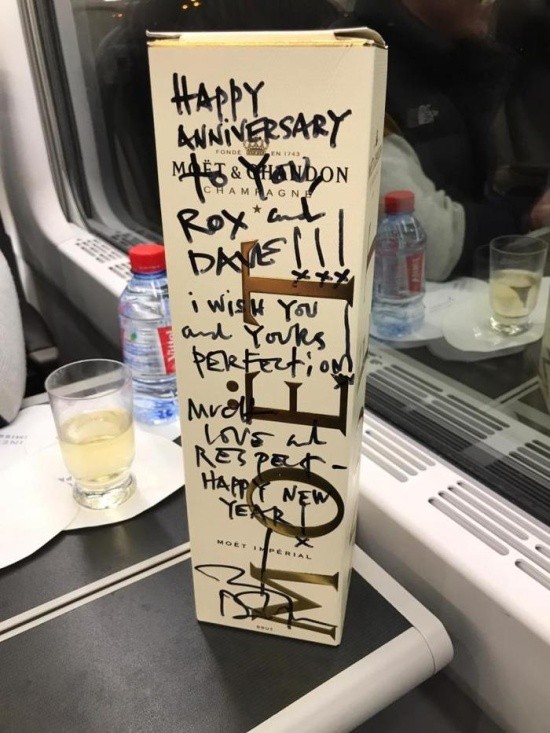 HAPPY
ANNIVERSARY
FONDÉ EN 1743
MOËT & CHANDON
to YOU,
CHAMPAGNE
ROX and
DAVE!!!
xxx
i WISH YOU
and YOURS
PERFECTION!
MUCH
LOVE and
RESPECT-
HAPPY NEW
YEAR!
x
MOËT IMPÉRIAL
BRUT
MOËT